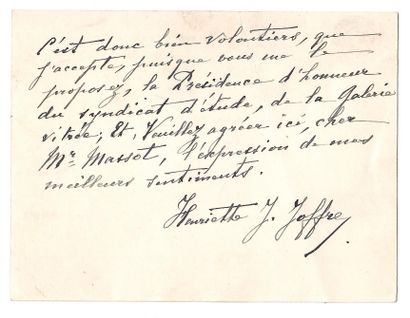 C'est donc bien volontiers, que
j'accepte, puisque vous me le
proposez, la Présidence d'honneur
du syndicat d'étude, de la Galerie
vitrée; Et, Veuillez agréer ici, cher
Mr Massot, l'expression de mes
meilleurs sentiments.
Henriette J. Joffre